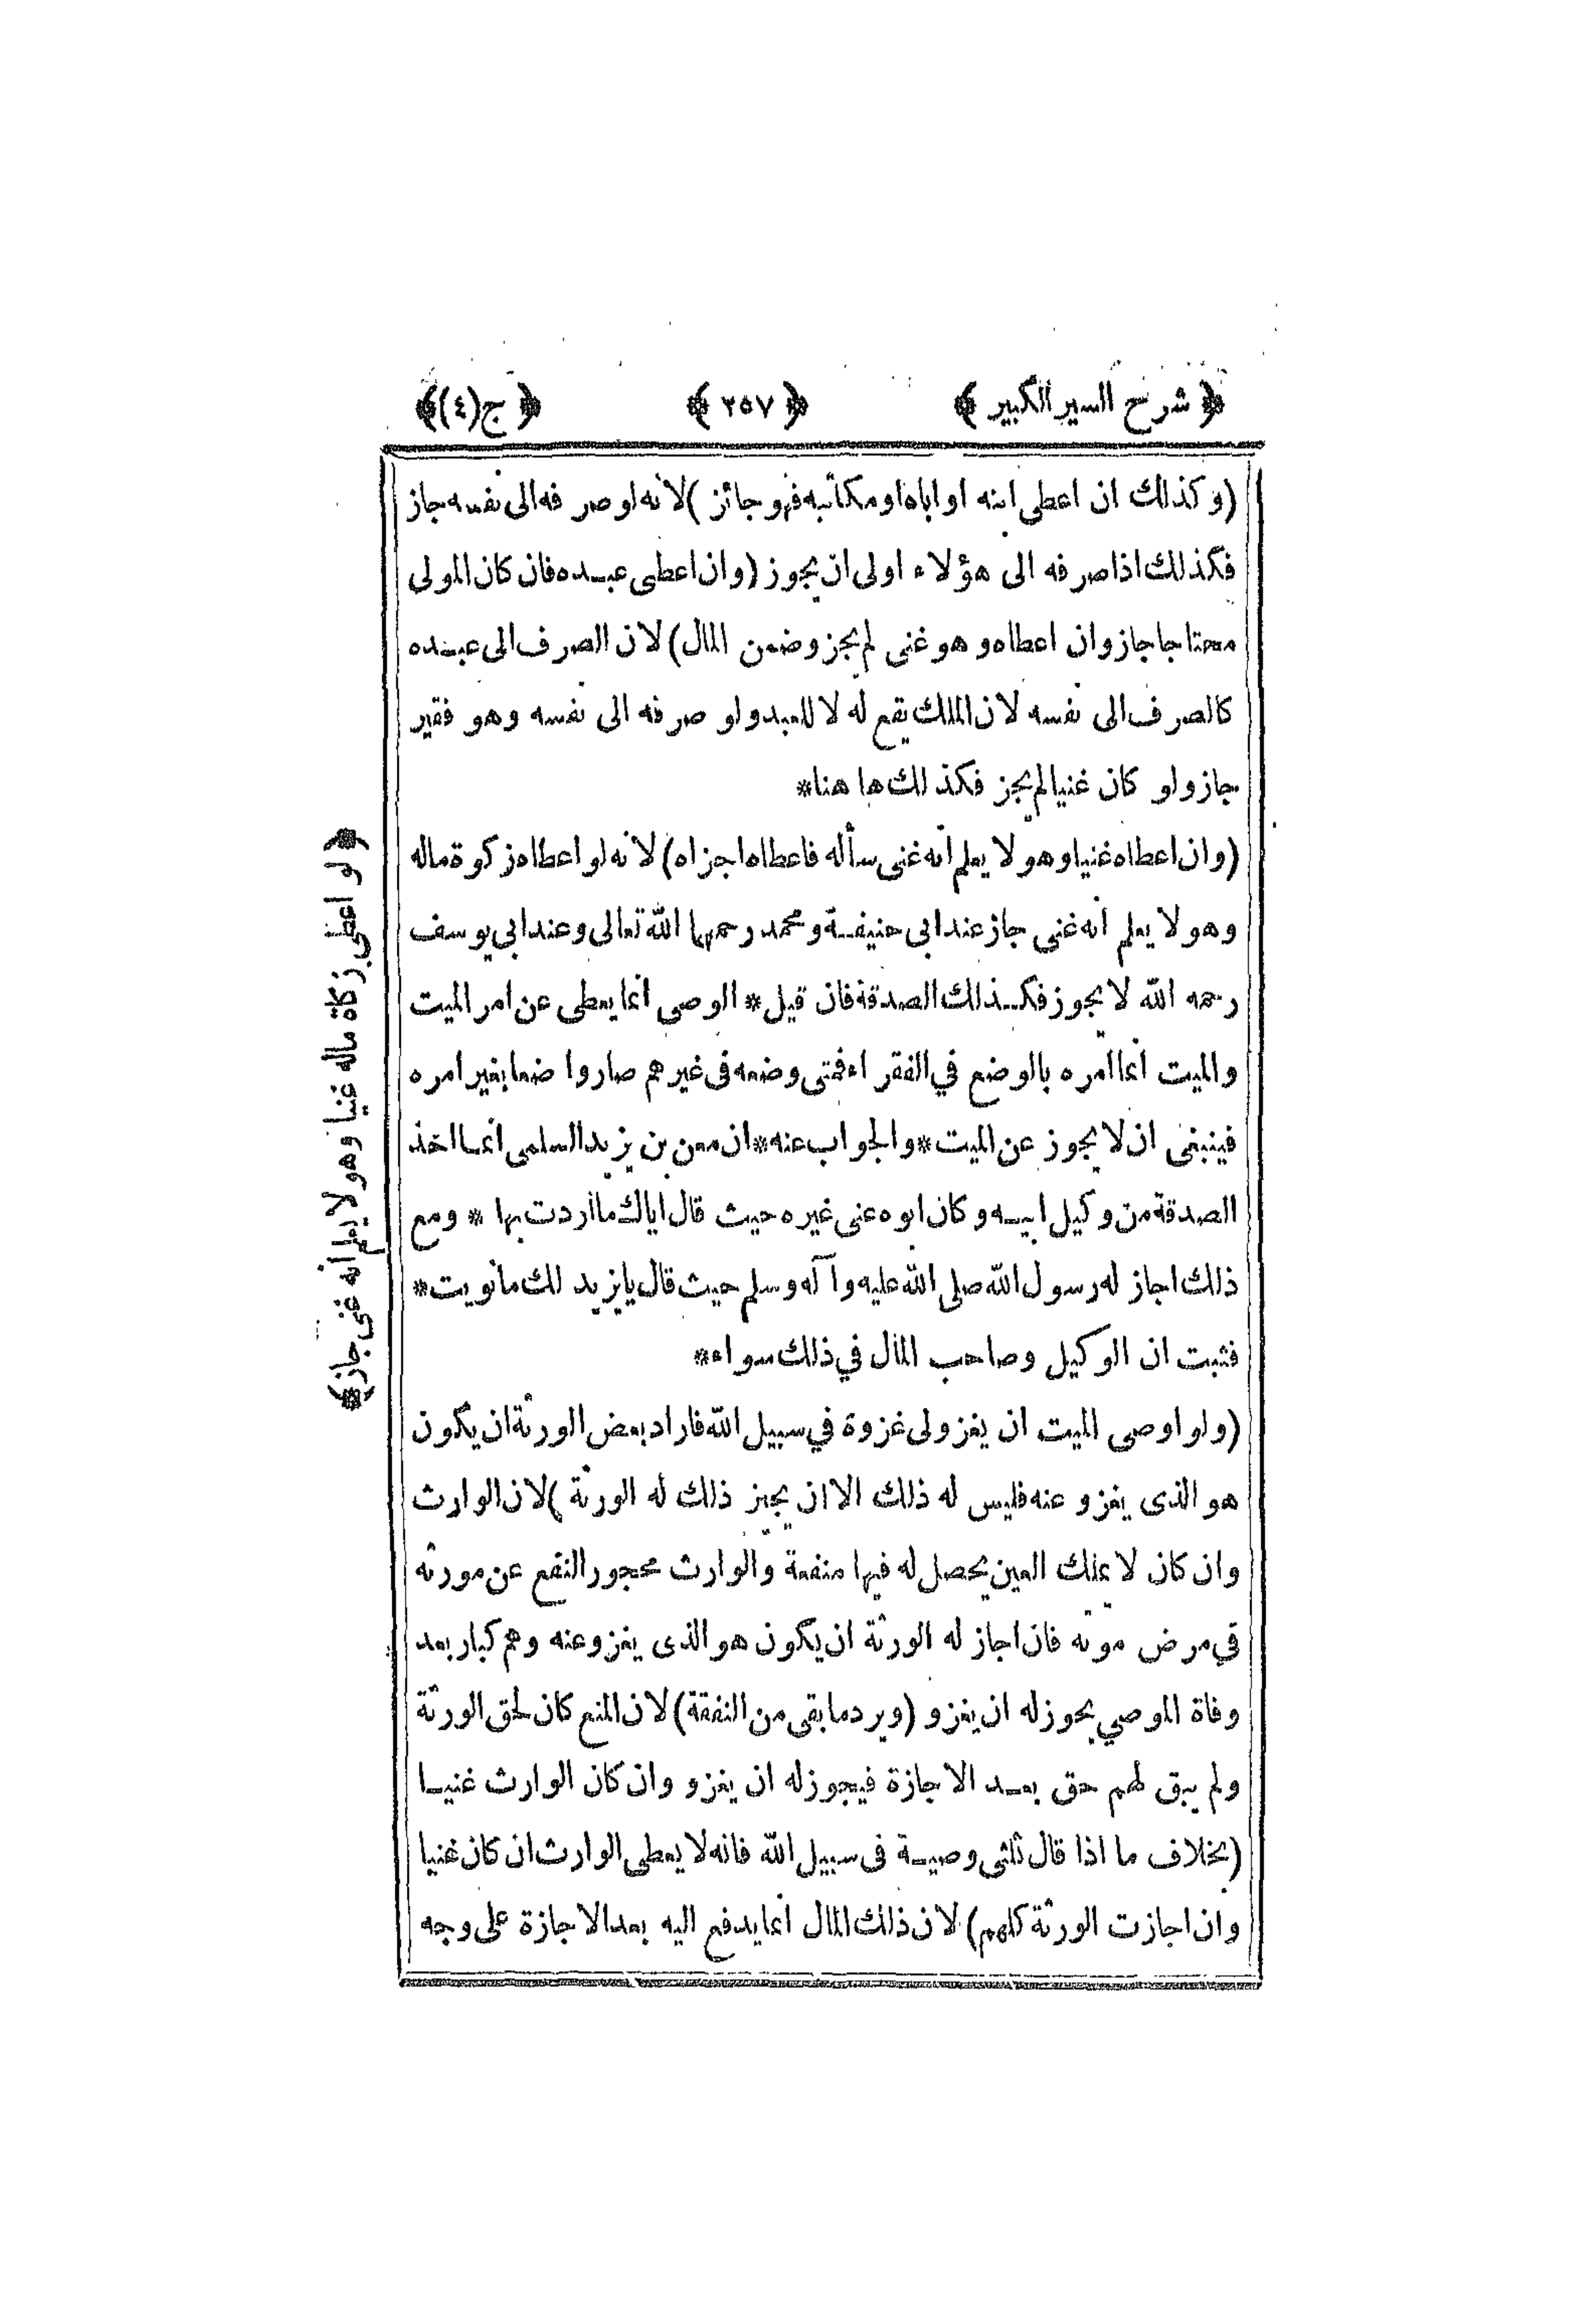 ﴿ شرح السير الكبير ﴾ ﴿ ٢٥٧ ﴾ ﴿ ج(٤)﴾
(وكذلك ان اعطى ابنه او اباه او مكاتبه فهو جائز) لانه لو صرفه الى نفسه جاز
فكذلك اذا صرفه الى هؤلاء اولى ان يجوز (وان اعطى عبده فان كان المولى
محتاجا جاز وان اعطاه وهو غنى لم يجز وضمن المال) لان الصرف الى عبده
كالصرف الى نفسه لان الملك يقع له لا للعبد ولو صرفه الى نفسه وهو فقير
جاز ولو كان غنيا لم يجز فكذلك ها هنا*
(وان اعطاه غنيا وهو لا يعلم انه غنى سأله فاعطاه اجزاه) لانه لو اعطاه زكوة ماله
وهو لا يعلم انه غنى جاز عند ابى حنيفة ومحمد رحمهما الله تعالى وعند ابي يوسف
رحمه الله لا يجوز فكذلك الصدقة فان قيل* الوصى انما يعطى عن امر الميت
والميت انما امره بالوضع في الفقراء فمتى وضعه فى غيرهم صار واضعا بغير امره
فينبغى ان لا يجوز عن الميت*والجواب عنه*ان معن بن يزيد السلمى انما اخذ
الصدقة من وكيل ابيه وكان ابوه عنى غيره حيث قال اياك ما اردت بها * ومع
ذلك اجاز له رسول الله صلى الله عليه وآله وسلم حيث قال يا يزيد لك ما نويت*
فثبت ان الوكيل وصاحب المال في ذلك سواء*
(ولو اوصى الميت ان يغزولى غزوة في سبيل الله فاراد بعض الورثة ان يكون
هو الذى يغزو عنه فليس له ذلك الا ان يجيز ذلك له الورثة) لان الوارث
وان كان لا يملك العين يحصل له فيها منفعة والوارث محجور النفع عن مورثه
في مرض موته فان اجاز له الورثة ان يكون هو الذى يغزو عنه وهم كبار بعد
وفاة الموصي يجوز له ان يغزو (ويرد ما بقى من النفقة) لان المنع كان لحق الورثة
ولم يبق لهم حق بعد الاجازة فيجوز له ان يغزو وان كان الوارث غنيا
(بخلاف ما اذا قال ثلثى وصية فى سبيل الله فانه لا يعطى الوارث ان كان غنيا
وان اجازت الورثة كلهم) لان ذلك المال انما يدفع اليه بعد الاجازة على وجه
﴿لو اعطى زكاة ماله غنيا وهو لا يعلم انه غنى جاز﴾